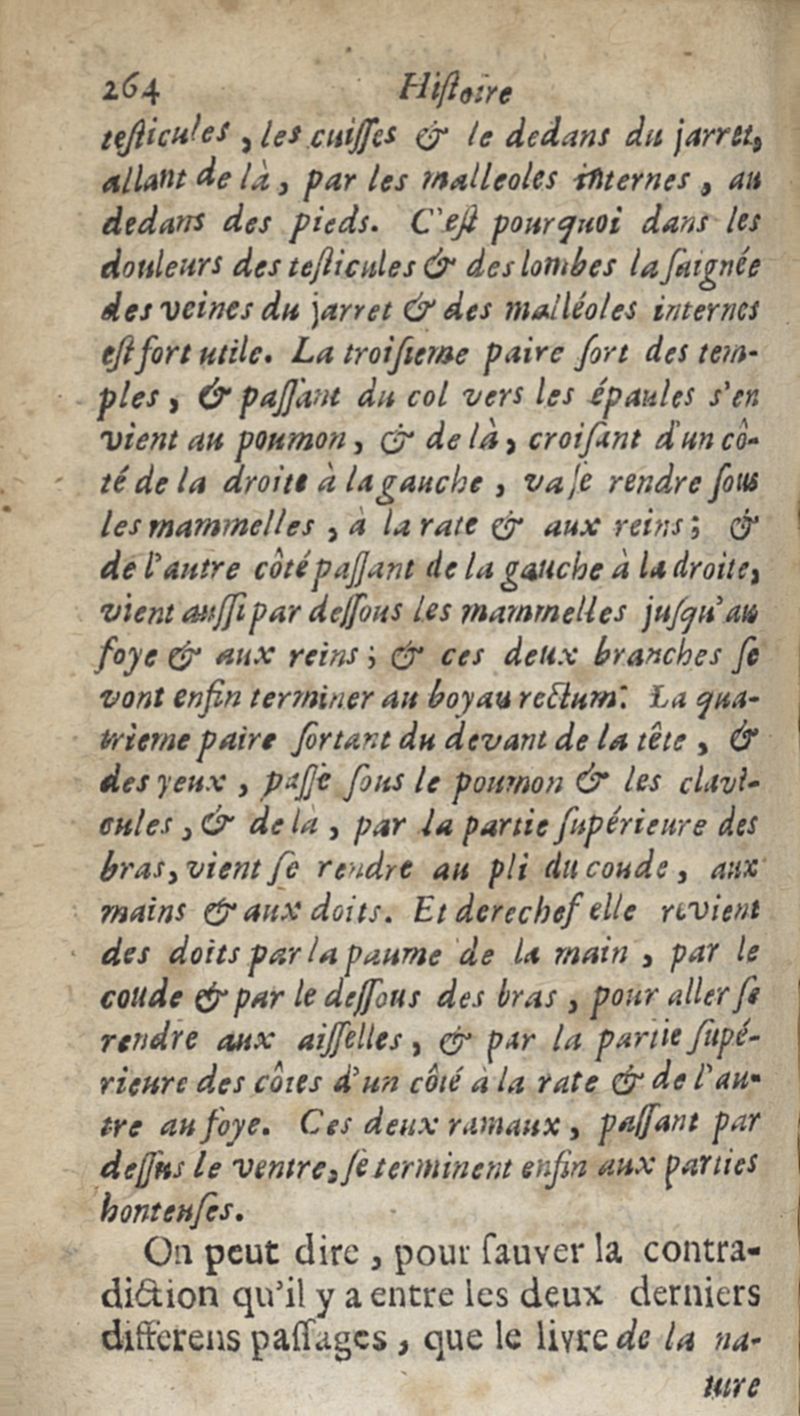 264 Hiſtoire
teſticules, les cuiſſes & le dedans du jarret,
allant de là, par les malleoles internes, au
dedans des pieds. C'eſt pourquoi dans les
douleurs des teſticules & des lombes la ſaignée
des veines du jarret & des malléoles internes
eſt fort utile. La troiſieme paire ſort des tem-
ples, & paſſant du col vers les épaules s'en
vient au poumon, & de là, croiſant d'un cô-
té de la droite à la gauche, va ſe rendre ſous
les mammelles, à la rate & aux reins; &
de l'autre côté paſſant de la gauche à la droite,
vient auſſi par deſſous les mammelles juſqu'au
foye & aux reins; & ces deux branches ſe
vont enfin terminer au boyau rectum. La qua-
trieme paire ſortant du devant de la tête, &
des yeux, paſſe ſous le poumon & les clavi-
cules, & de là, par la partie ſupérieure des
bras, vient ſe rendre au pli du coude, aux
mains & aux doits. Et derechef elle revient
des doits par la paume de la main, par le
coude & par le deſſous des bras, pour aller ſe
rendre aux aiſſelles, & par la partie ſupé-
rieure des côtes d'un côté à la rate & de l'au-
tre au foye. Ces deux ramaux, paſſant par
deſſus le ventre, ſe terminent enfin aux parties
honteuſes.
On peut dire, pour ſauver la contra-
diction qu'il y a entre les deux derniers
differens paſſages, que le livre de la na-
ture